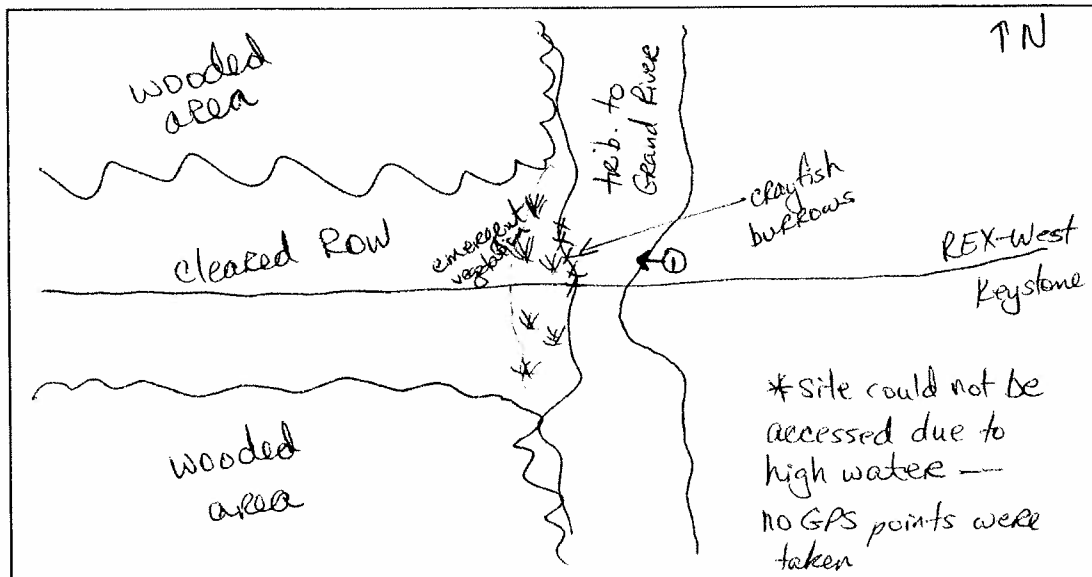 ↑N
wooded
area
trib. to
Grand River
crayfish
burrows
emergent
vegetation
cleared ROW
①
REX-West
Keystone
wooded
area
*Site could not be
accessed due to
high water —
no GPS points were
taken